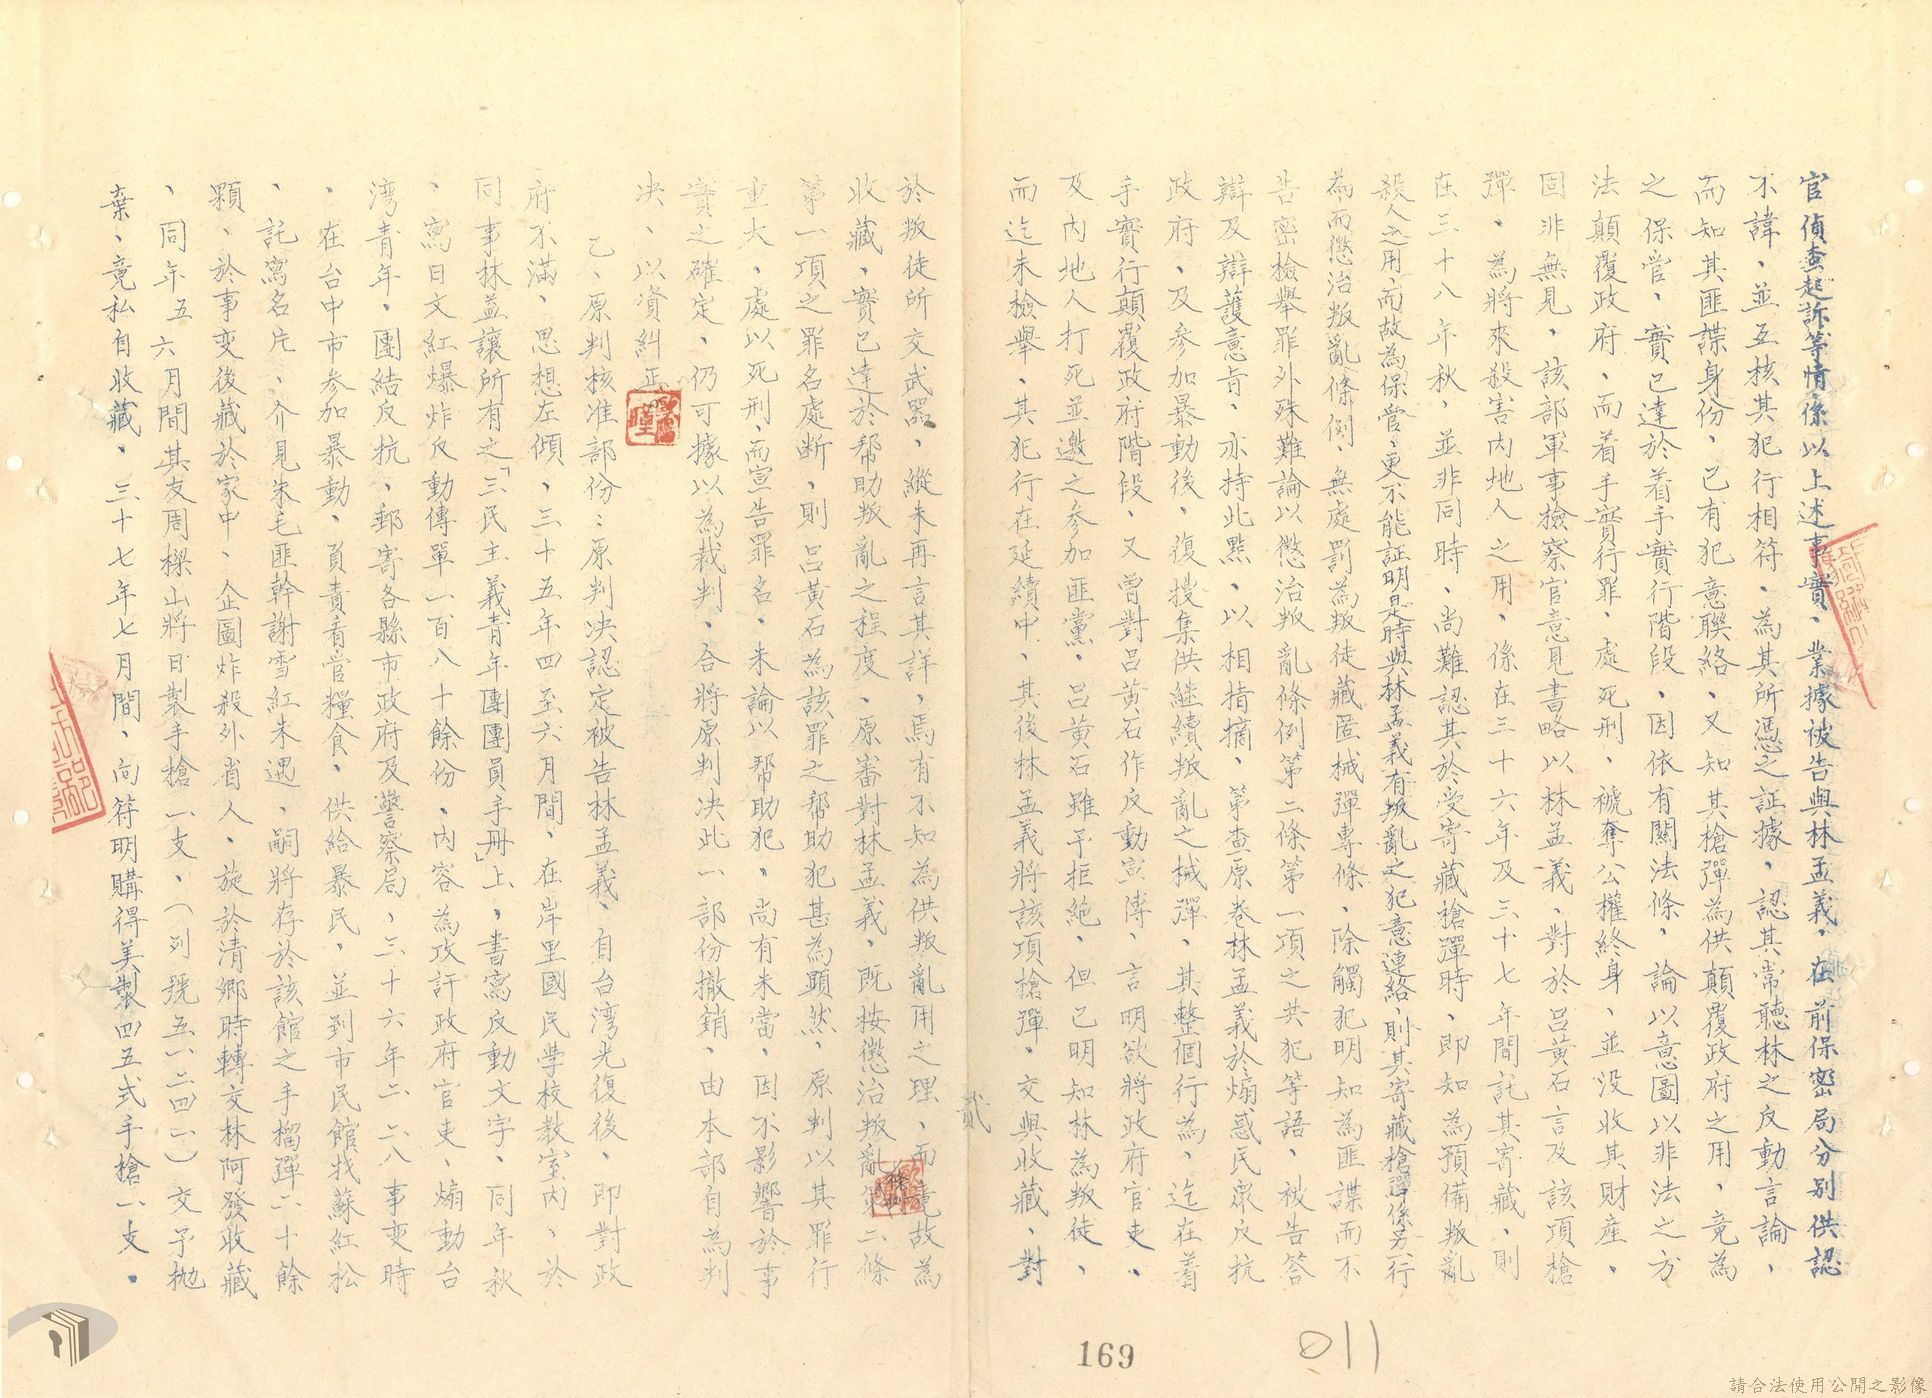 官偵查起訴等情、係以上述事實、業據被告與林孟義、在前保密局分別供認
不諱、並互核其犯行相符、為其所憑之証據、認其常聽林之反動言論、
而知其匪諜身份、已有犯意聯絡、又知其槍彈為供顛覆政府之用、竟為
之保管、實已達於着手實行階段、因依有關法條、論以意圖以非法之方
法顛覆政府、而着手實行罪、處死刑、褫奪公權終身、並没收其財產、
固非無見、該部軍事檢察官意見書略以林孟義、對於呂黃石言及該項槍
彈、為將來殺害内地人之用、係在三十六年及三十七年間託其寄藏、則
在三十八年秋、並非同時、尚難認其於受寄藏槍彈時、即知為預備叛亂
殺人之用、而故為保管、更不能証明是時與林孟義有叛亂之犯意連絡、則其寄藏槍彈係另一行
為、而懲治叛亂條例、無處罰為叛徒藏匿械彈專條、除觸犯明知為匪諜而不
告密檢舉罪外殊難論以懲治叛亂條例第二條第一項之共犯等語、被告答
辯及辯護意旨、亦持此點、以相指摘、第查原卷林孟義於煽惑民衆反抗
政府、及參加暴動後、復搜集供継續叛亂之械彈、其整個行為、迄在着
手實行顛覆政府階段、又曾對呂黃石作反動宣傳、言明欲將政府官吏、
及内地人打死並邀之參加匪黨、呂黃石雖予拒絶、但已明知林為叛徒、
而迄未檢舉、其犯行在延續中、其後林孟義將該項槍彈、交與收藏、對
貳
於叛徒所交武器、縱未再言其詳、焉有不知為供叛亂用之理、而竟故為
收藏、實已達於帮助叛亂之程度、原審對林孟義、既按懲治叛亂第二條
第一項之罪名處断、則呂黃石為該罪之帮助犯甚為顕然、原判以其罪行
重大、處以死刑、而宣告罪名、未論以帮助犯、尚有未當、因不影響於事
實之確定、仍可據以為裁判、合將原判决此一部份撤銷、由本部自為判
决、以資糾正
乙、原判核准部份：原判决認定被告林孟義、自台湾光復後、即對政
府不滿、思想左傾、三十五年四至六月間、在岸里國民学校教室内、於
同事林益讓所有之「三民主義青年團團員手冊」上、書寫反動文字、同年秋
、寫日文紅爆炸反動傳單一百八十餘份、内容為攻訐政府官吏、煽動台
湾青年、團結反抗、郵寄各縣市政府及警察局、三十六年二二八事变時
、在台中市參加暴動、負責看管糧食、供給暴民、並到市民館找蘇紅松
、託寫名片、介見朱毛匪幹謝雪紅未遇、嗣將存於該館之手榴彈二十餘
顆、於事变後藏於家中、企圖炸殺外省人、旋於清鄉時轉交林阿發收藏
、同年五六月間其友周樑山將日製手槍一支、（列號五一二四一）交予拋
棄、竟私自收藏、三十七年七月間、向符明購得美製四五式手槍一支、
169
011
請合法使用公開之影像